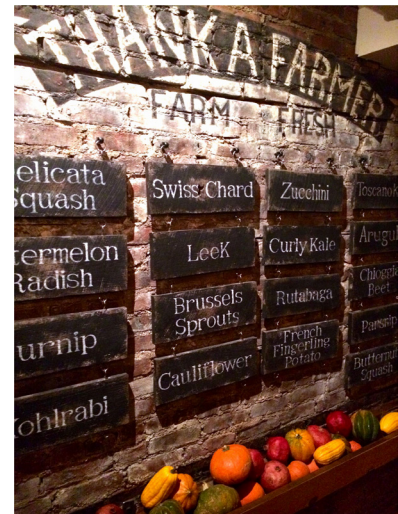 THANK A FARMER
FARM FRESH
elicata
Squash
termelon
Radish
urnip
ohlrabi
Swiss Chard
Leek
Brussels
Sprouts
Cauliflower
Zucchini
Curly Kale
Rutabaga
French
Fingerling
Potato
Toscano
Arugul
Chioggia
Beet
Parsnip
Butternut
Squash